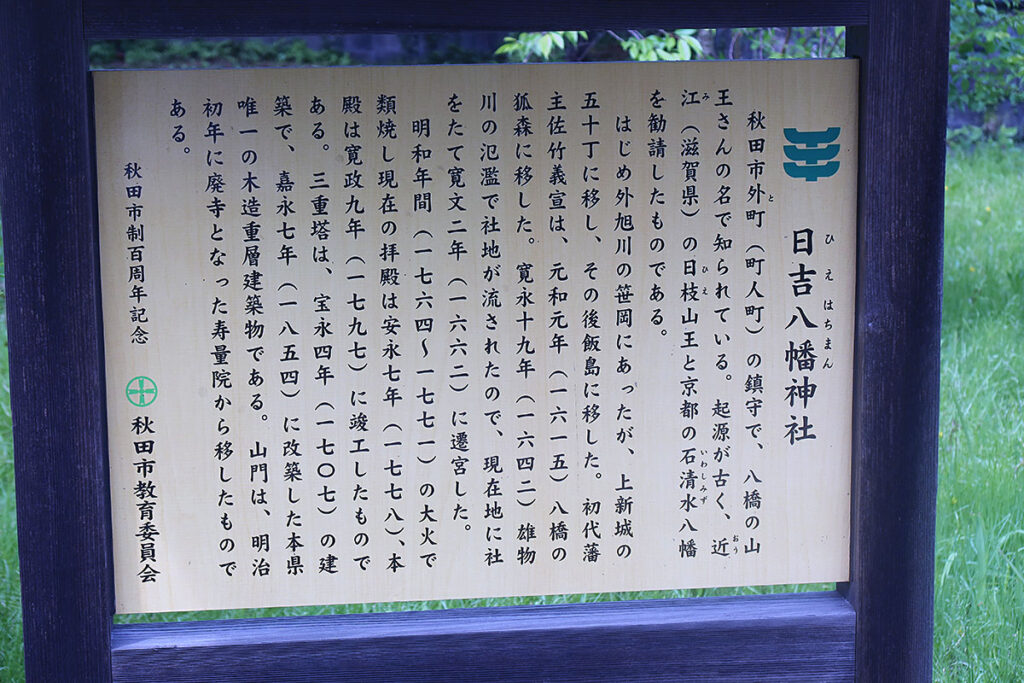 日吉八幡神社
ひえはちまん
秋田市外町（町人町）の鎮守で、八橋の山
と
王さんの名で知られている。起源が古く、近
おう
江（滋賀県）の日枝山王と京都の石清水八幡
み
ひえ
いわしみず
を勧請したものである。
はじめ外旭川の笹岡にあったが、上新城の
五十丁に移し、その後飯島に移した。初代藩
主佐竹義宣は、元和元年（一六一五）八橋の
狐森に移した。寛永十九年（一六四二）雄物
川の氾濫で社地が流されたので、現在地に社
をたて寛文二年（一六六二）に遷宮した。
明和年間（一七六四～一七七一）の大火で
類焼し現在の拝殿は安永七年（一七七八）、本
殿は寛政九年（一七九七）に竣工したもので
ある。三重塔は、宝永四年（一七〇七）の建
築で、嘉永七年（一八五四）に改築した本県
唯一の木造重層建築物である。山門は、明治
初年に廃寺となった寿量院から移したもので
ある。
秋田市制百周年記念
秋田市教育委員会